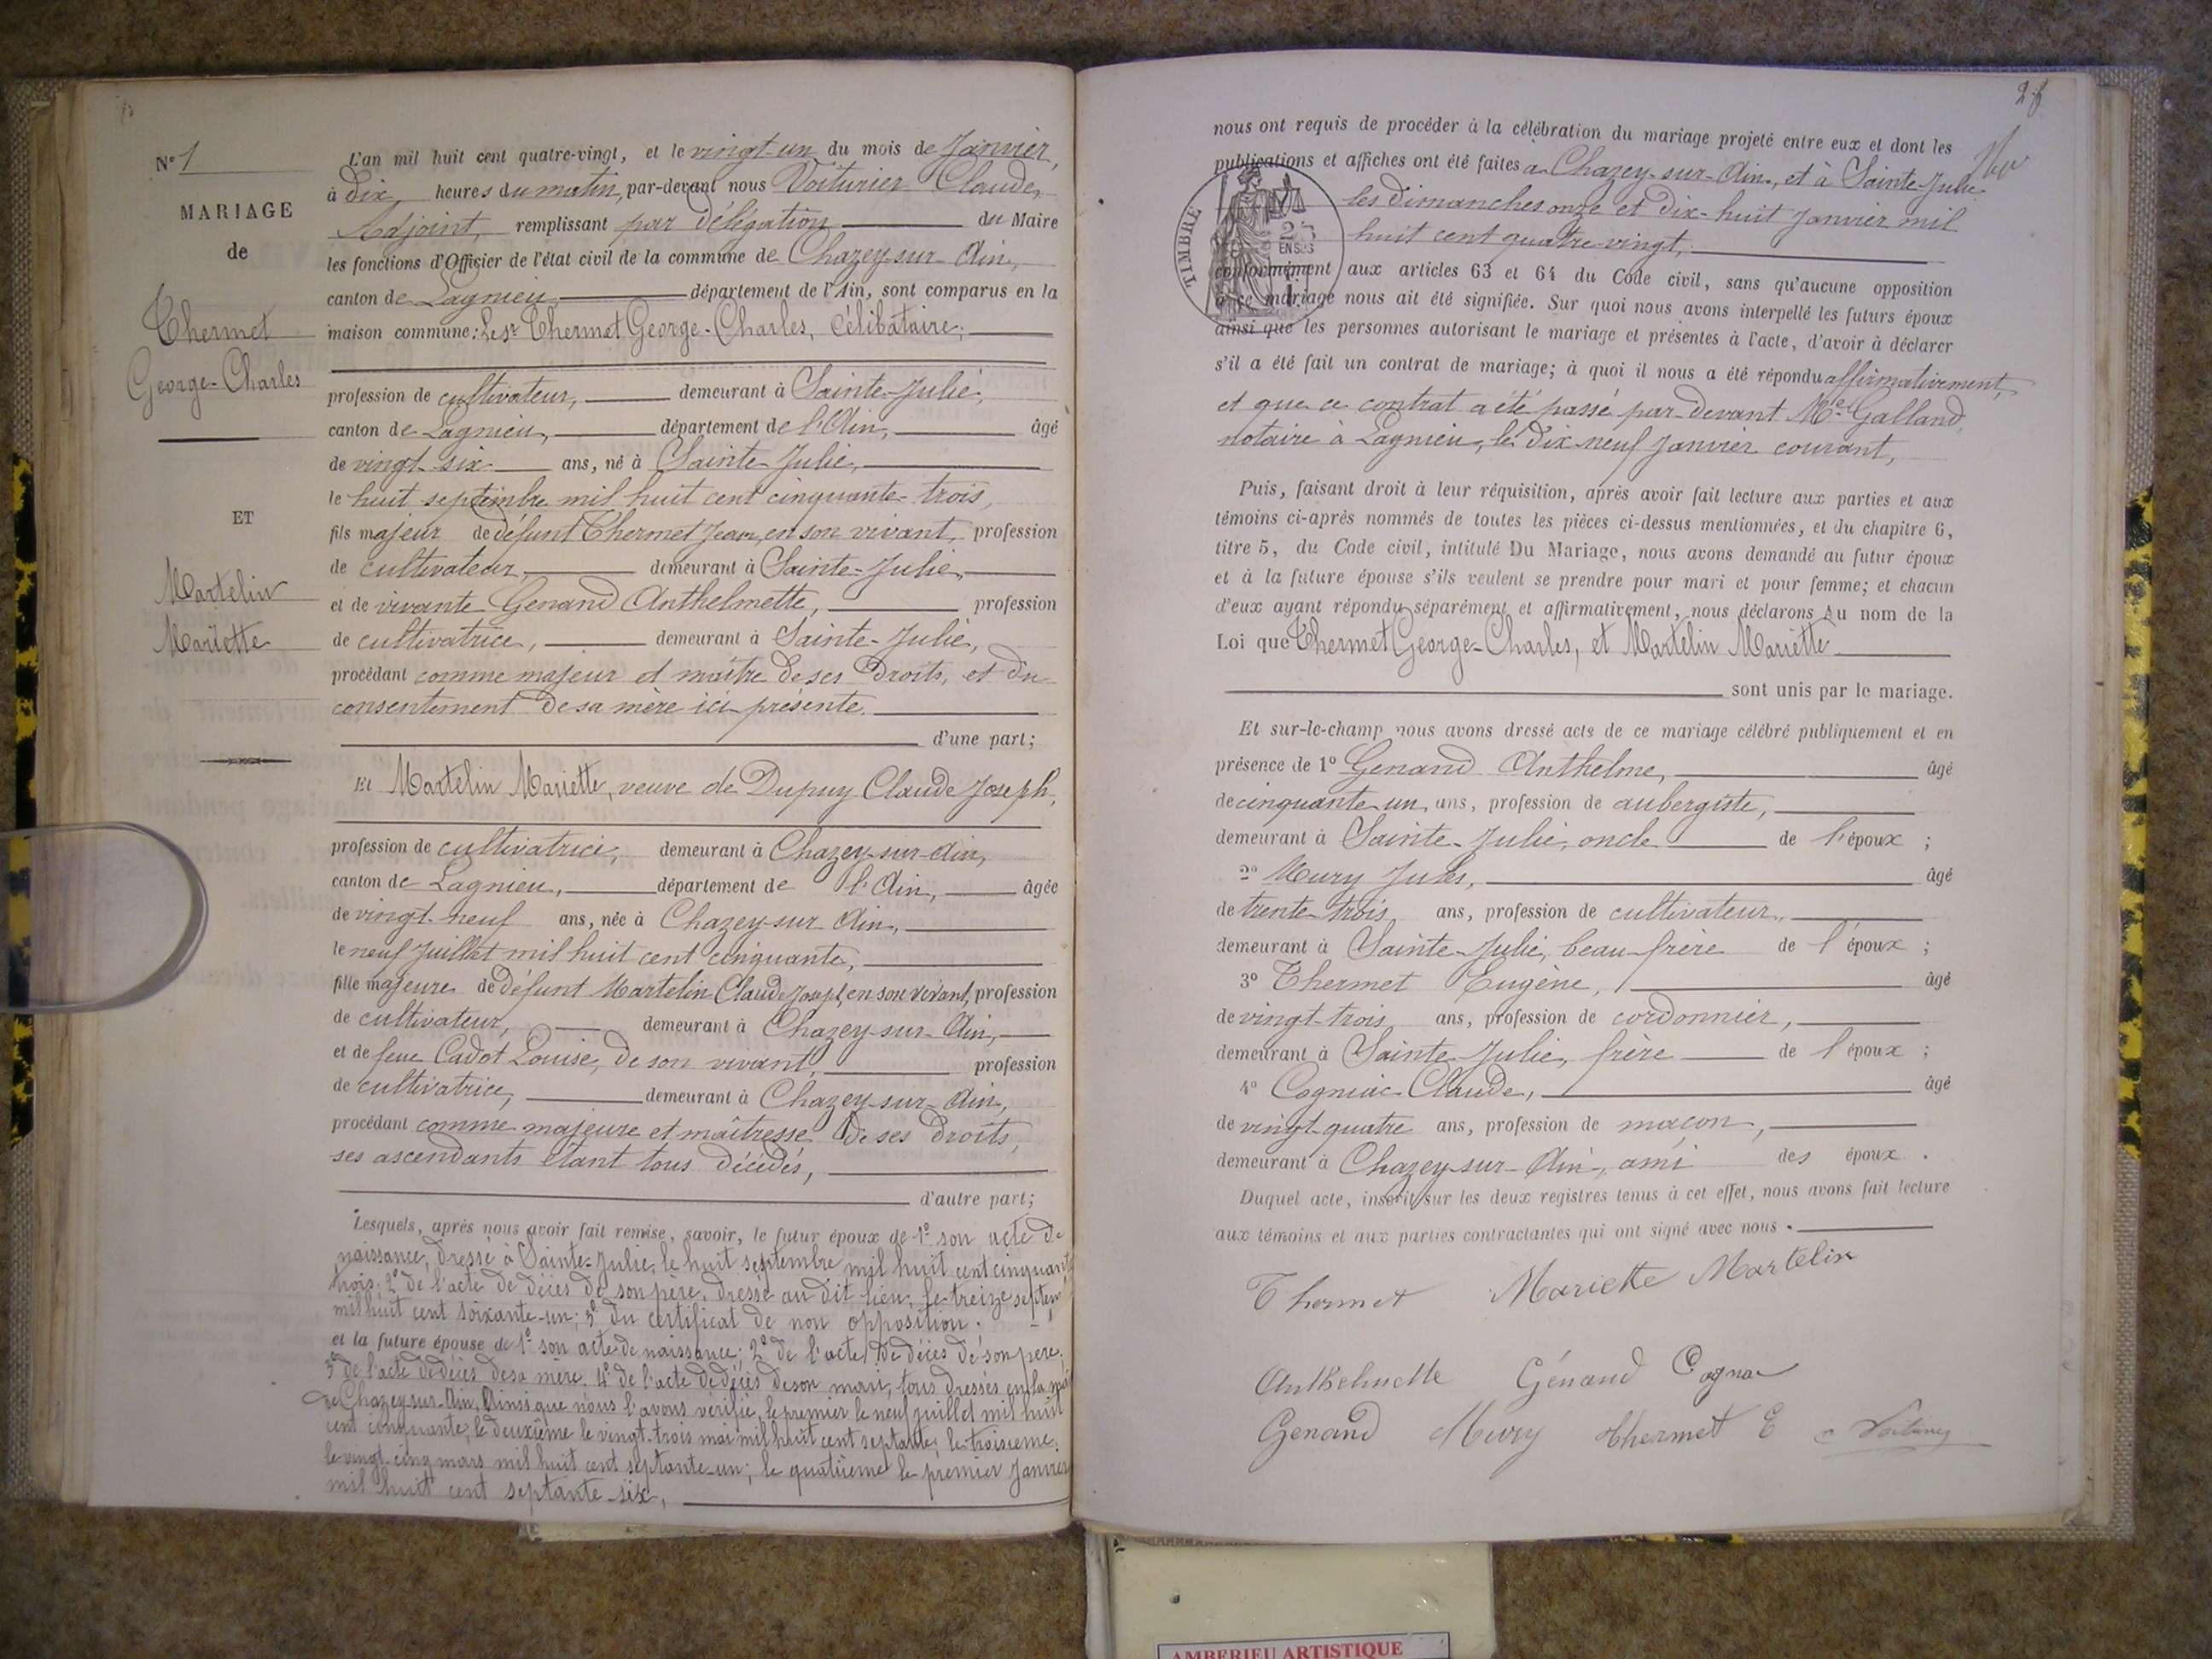 N° 1
MARIAGE
de
Thermet
George-Charles
ET
Martelin
Mariette
L'an mil huit cent quatre-vingt, et le vingt-un du mois de Janvier,
à dix heures du matin, par-devant nous Voiturier Claude,
Adjoint, remplissant par délégation du Maire
les fonctions d'Officier de l'état civil de la commune de Chazey-sur-Ain,
canton de Lagnieu, département de l'Ain, sont comparus en la
maison commune : Le sr Thermet George-Charles, célibataire,
profession de cultivateur, demeurant à Sainte-Julie,
canton de Lagnieu, département de l'Ain, âgé
de vingt-six ans, né à Sainte-Julie,
le huit septembre mil huit cent cinquante-trois,
fils majeur de défunt Thermet Jean, en son vivant, profession
de cultivateur, demeurant à Sainte-Julie,
et de vivante Genand Anthelmette, profession
de cultivatrice, demeurant à Sainte-Julie,
procédant comme majeur et maître de ses droits, et du
consentement de sa mère ici présente.
d'une part;
Et Martelin Mariette, veuve de Dupuy Claude Joseph,
profession de cultivatrice, demeurant à Chazey-sur-Ain,
canton de Lagnieu, département de l'Ain, âgée
de vingt-neuf ans, née à Chazey-sur-Ain,
le neuf Juillet mil huit cent cinquante,
fille majeure de défunt Martelin Claude Joseph, en son vivant, profession
de cultivateur, demeurant à Chazey-sur-Ain,
et de feue Cadot Louise, de son vivant, profession
de cultivatrice, demeurant à Chazey-sur-Ain,
procédant comme majeure et maîtresse de ses droits,
ses ascendants étant tous décédés,
d'autre part;
Lesquels, après nous avoir fait remise, savoir, le futur époux de 1° son acte de
naissance, dressé à Sainte-Julie, le huit septembre mil huit cent cinquante
trois; 2° de l'acte de décès de son père, dressé au dit lieu, le treize septem
mil huit cent soixante-un; 3° du certificat de non opposition.
et la future épouse de 1° son acte de naissance; 2° de l'acte de décès de son père;
3° de l'acte de décès de sa mère. 4° de l'acte de décès de son mari, tous dressés en la
de Chazey-sur-Ain, Ainsi que nous l'avons vérifié, le premier le neuf juillet mil huit
cent cinquante; le deuxième le vingt-trois mai mil huit cent septante; le troisième,
le vingt-cinq mars mil huit cent septante-un; le quatrième le premier Janvier
mil huit cent septante-six,
28
nous ont requis de procéder à la célébration du mariage projeté entre eux et dont les
publications et affiches ont été faites à Chazey-sur-Ain, et à Sainte-Julie
les dimanches onze et dix-huit Janvier mil
huit cent quatre-vingt,
TIMBRE
25
EN SUS
conformément aux articles 63 et 64 du Code civil, sans qu'aucune opposition
à ce mariage nous ait été signifiée. Sur quoi nous avons interpellé les futurs époux
ainsi que les personnes autorisant le mariage et présentes à l'acte, d'avoir à déclarer
s'il a été fait un contrat de mariage; à quoi il nous a été répondu affirmativement,
et que ce contrat a été passé par-devant Me Galland,
notaire à Lagnieu, le dix-neuf Janvier courant,
Puis, faisant droit à leur réquisition, après avoir fait lecture aux parties et aux
témoins ci-après nommés de toutes les pièces ci-dessus mentionnées, et du chapitre 6,
titre 5, du Code civil, intitulé Du Mariage, nous avons demandé au futur époux
et à la future épouse s'ils veulent se prendre pour mari et pour femme; et chacun
d'eux ayant répondu séparément et affirmativement, nous déclarons Au nom de la
Loi que Thermet George-Charles, et Martelin Mariette
sont unis par le mariage.
Et sur-le-champ nous avons dressé acte de ce mariage célébré publiquement et en
présence de 1° Genand Anthelme, âgé
de cinquante-un ans, profession de aubergiste,
demeurant à Sainte-Julie, oncle de l'époux ;
2° Mury Jules, âgé
de trente-trois ans, profession de cultivateur,
demeurant à Sainte-Julie, beau-frère de l'époux ;
3° Thermet Eugène, âgé
de vingt-trois ans, profession de cordonnier,
demeurant à Sainte-Julie, frère de l'époux ;
4° Cogniac Claude, âgé
de vingt-quatre ans, profession de maçon,
demeurant à Chazey-sur-Ain, ami des époux.
Duquel acte, inscrit sur les deux registres tenus à cet effet, nous avons fait lecture
aux témoins et aux parties contractantes qui ont signé avec nous.
Thermet Mariette Martelin
Anthelmette Génand Cognac
Genand Mury Thermet E
AMBERIEU ARTISTIQUE